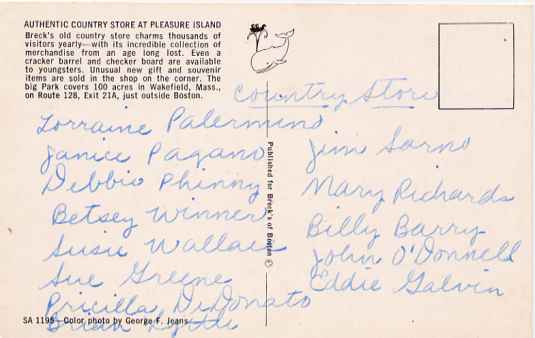 AUTHENTIC COUNTRY STORE AT PLEASURE ISLAND
Breck's old country store charms thousands of
visitors yearly—with its incredible collection of
merchandise from an age long lost. Even a
cracker barrel and checker board are available
to youngsters. Unusual new gift and souvenir
items are sold in the shop on the corner. The
big Park covers 100 acres in Wakefield, Mass.,
on Route 128, Exit 21A, just outside Boston.
Country Store
Lorraine Palermino
Janice Pagano
Debbie Phinny
Betsey Winner
Susie Wallace
Sue Greene
Pricilla DiDonato
Brian
Published for Breck's of Boston ©
Jim Sarno
Mary Richards
Billy Barry
John O'Donnell
Eddie Galvin
SA 1195—Color photo by George F. Jeans